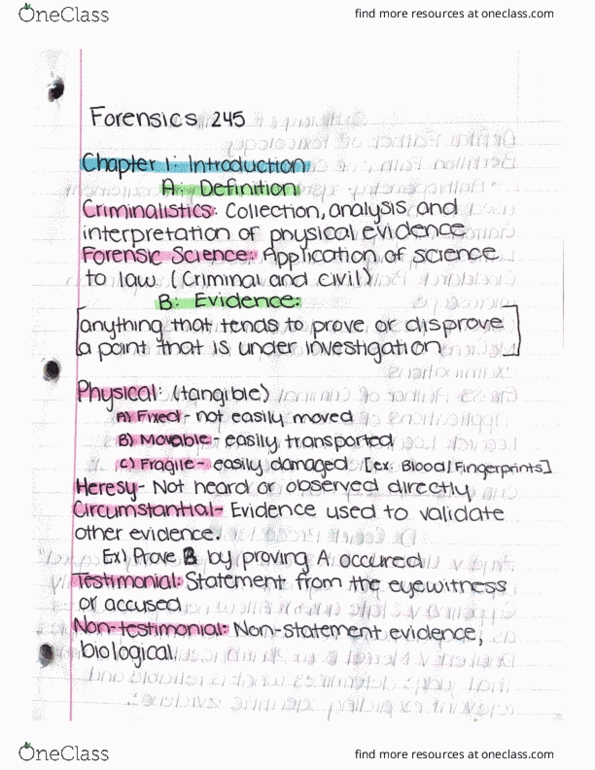 OneClass
find more resources at oneclass.com
Forensics 245
Chapter 1: Introduction
A: Definition
Criminalistics: Collection, analysis and
interpretation of physical evidence
Forensic Science: Application of science
to law. (Criminal and civil)
B: Evidence:
[anything that tends to prove or disprove
a point that is under investigation]
Physical: (tangible)
A) Fixed - not easily moved
B) Movable - easily transported
C) Fragile - easily damaged [ex: Blood/Fingerprints]
Heresy - Not heard or observed directly
Circumstantial - Evidence used to validate
other evidence.
Ex) Prove B by proving A occured
Testimonial: Statement from the eyewitness
or accused
Non-testimonial: Non-statement evidence,
biological.
OneClass
find more resources at oneclass.com